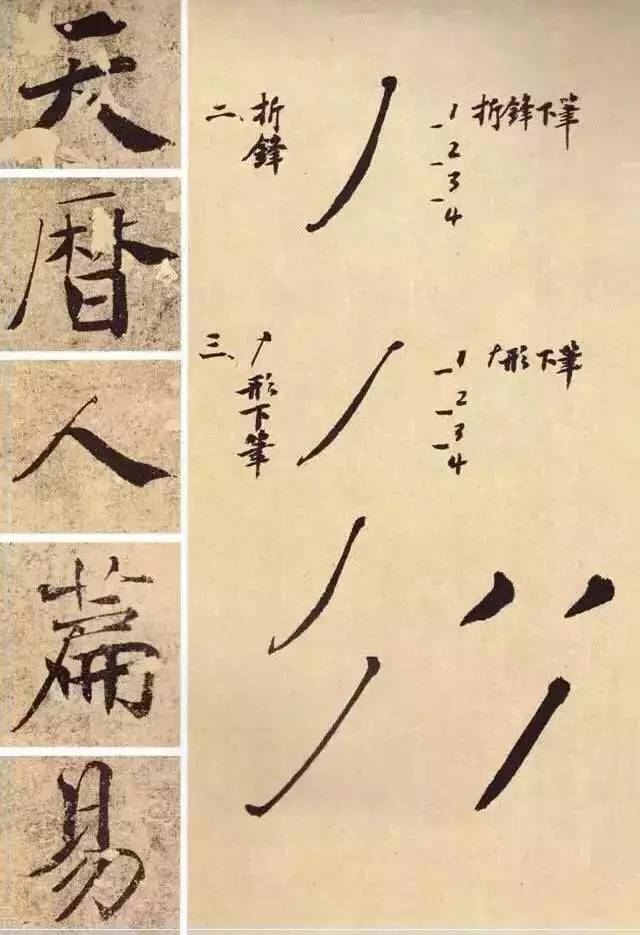 天
曆
人
萹
易
二、折鋒
1 折鋒下筆
2
3
4
三、形下筆
1 形下筆
2
3
4